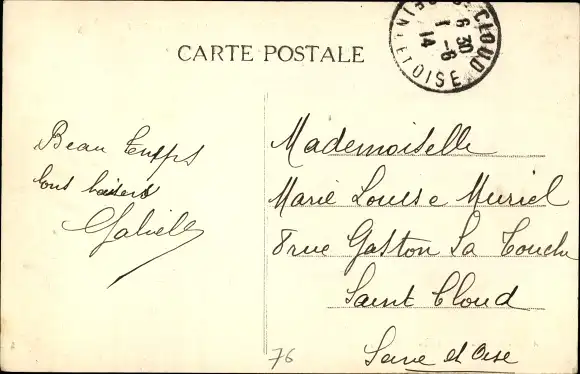 CARTE POSTALE
ST CLOUD
6 30
1-6
14
SEINE ET OISE
Beau temps
bons baisers
Gabielle
Mademoiselle
Marie Louise Muriel
8 rue Gaston La Touche
Saint Cloud
Seine et Oise
76